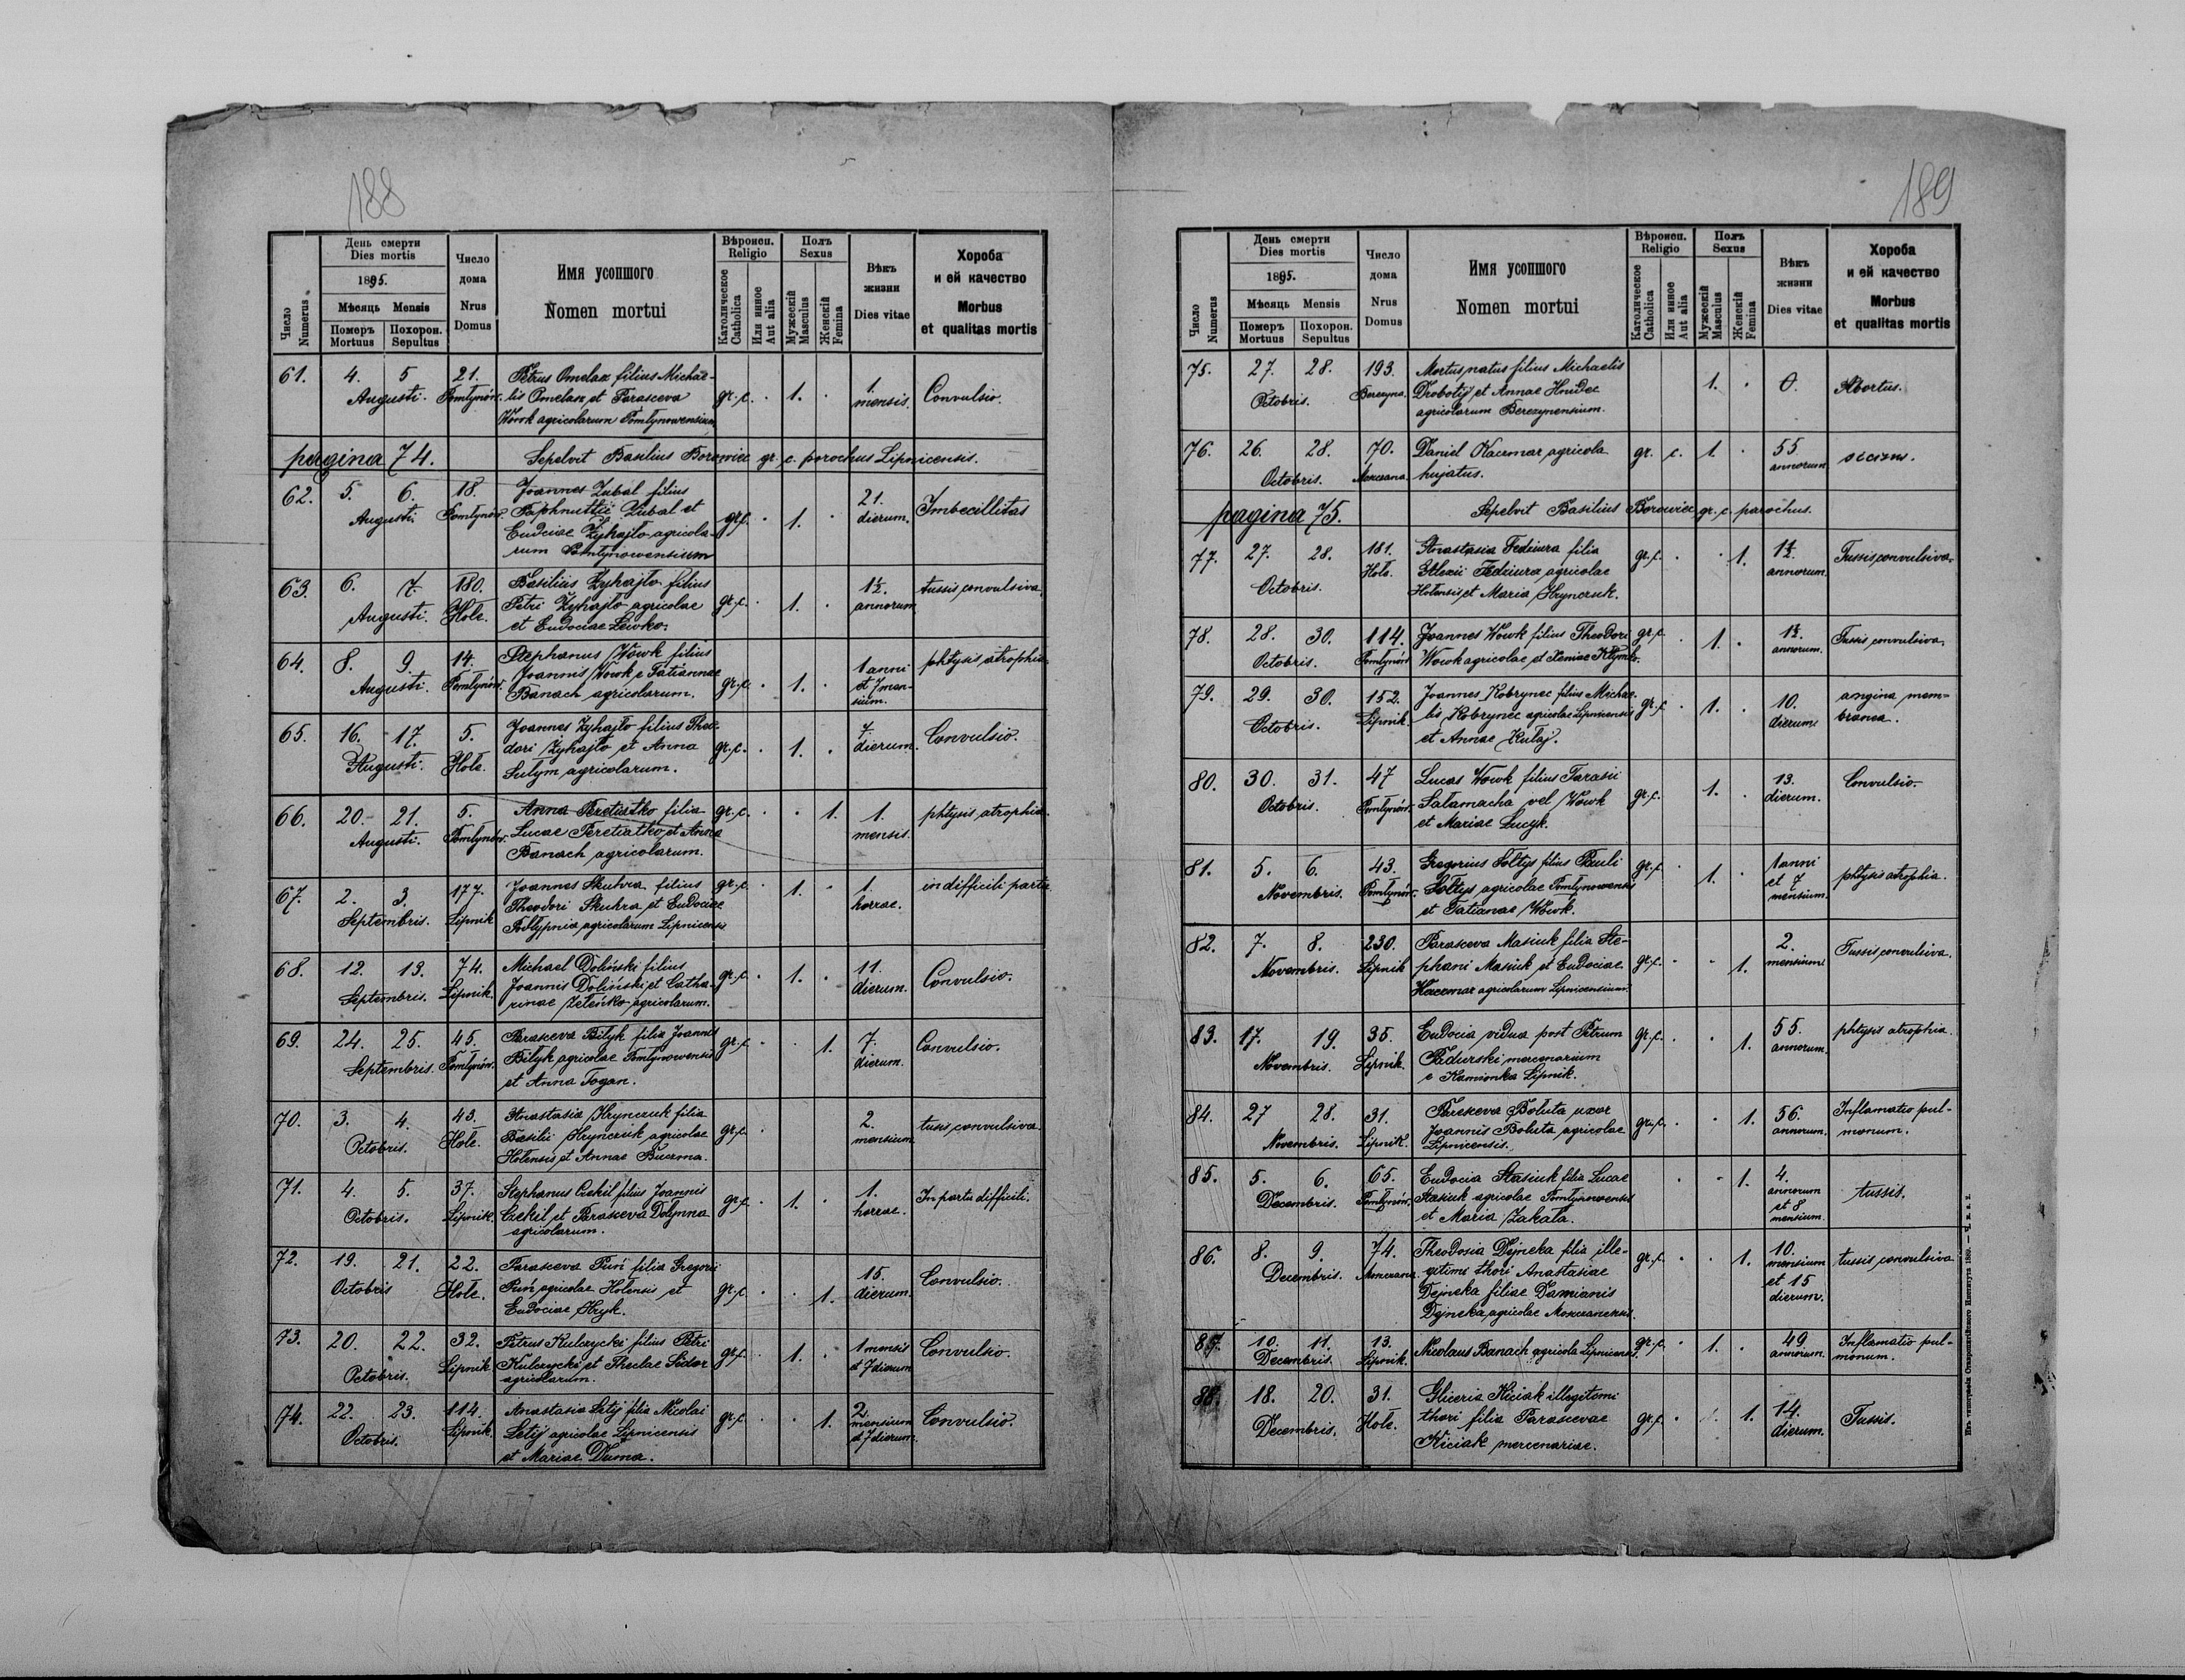 188
День смерти
Dies mortis
1895.
Мѣсяць Mensis
Число
Numerus
Померъ
Mortuus
Похорон.
Sepultus
Число
дома
Nrus
Domus
Имя усопшого
Nomen mortui
Вѣроисп.
Religio
Католическое
Catholica
Или инное
Aut alia
Полъ
Sexus
Мужескій
Masculus
Женскій
Femina
Вѣкъ
жизни
Dies vitae
Хороба
и ей качество
Morbus
et qualitas mortis
61. 4. 5 21. Petrus Omelan filius Michae-
Augusti. Pomłynów. lis Omelan et Parasceva gr. c. 1. 1. mensis. Convulsio.
Wowk agricolarum Pomłynowensium
pagina 74. Sepelvit Basilius Borowiec gr. c. parochus Lipnicensis.
62. 5. 6. 18. Joannes Zubal filius 21.
Augusti. Pomłynów. Paphnutii Zubal et gr. c. 1. dierum. Imbecillitas
Eudociae Zyhajło agricola-
rum Pomłynowensium
63. 6. 7. 180. Basilius Zyhajło filius 1½. tussis convulsiva.
Augusti. Hołe. Petri Zyhajło agricolae gr. c. 1. annorum
et Eudociae Lewko.
64. 8. 9. 14. Stephanus Wowk filius phtysis atrophia
Augusti. Pomłynów. Joannis Wowk e Tatiannae gr. c. 1. 1 anni
Banach agricolarum. et 7 men-
sium.
65. 16. 17. 5. Joannes Zyhajło filius Theo- 7.
Augusti. Hołe. dori Zyhajło et Anna gr. c. 1. dierum. Convulsio.
Sułym agricolarum.
66. 20. 21. 5. Anna Peretiatko filia gr. c. 1. 1. phtysis atrophia
Augusti. Pomłynów. Lucae Peretiatko et Anna mensis.
Banach agricolarum.
67. 2. 3. 177. Joannes Skuhra filius gr. c. 1. 1. in difficili partu
Septembris. Lipnik Theodori Skuhra et Eudociae horae.
agricolarum Lipnicensis
68. 12. 13. 74. Michael Doliński filius gr. c. 1. 11.
Septembris. Lipnik. Joannis Doliński et Catha- dierum. Convulsio.
rinae Zeleńko agricolarum.
69. 24. 25. 45. Parasceva Biłyk filia Joannis gr. c. 1. 7. Convulsio.
Septembris. Pomłynów. Biłyk agricolae Pomłynowensis dierum.
et Anna Togan.
70. 3. 4. 43. Anastasia Hrynczuk filia 2. tusis convulsiva.
Octobris. Hołe. Basilii Hrynczuk agricolae gr. c. mensium
Hołensis et Annae Buczma.
71. 4. 5. 37. Stephanus Czekil filius Joannis gr. c. 1. 1. In partu difficili.
Octobris. Lipnik. Czekil et Parasceva Dolynna horrae.
agricolarum.
72. 19. 21. 22. Parasceva Puń filia Gregorii 15.
Octobris Hołe. Puń agricolae Hołensis et gr. c. 1. dierum. Convulsio.
Eudociae Hryk.
73. 20. 22. 32. Petrus Kulczycki filius Petri 1 mensis Convulsio.
Octobris. Lipnik Kulczycki et Theclae Sidor gr. c. 1. et 7 dierum
agricolarum.
74. 22. 23. 114. Anastasia Letij filia Nicolai gr. c. 1. 2. mensium Convulsio.
Octobris. Lipnik. Letij agricolae Lipnicensis et 7 dierum.
et Mariae Duma.
189
День смерти
Dies mortis
1895.
Мѣсяць Mensis
Число
Numerus
Померъ
Mortuus
Похорон.
Sepultus
Число
дома
Nrus
Domus
Имя усопшого
Nomen mortui
Вѣроисп.
Religio
Католическое
Catholica
Или инное
Aut alia
Полъ
Sexus
Мужескій
Masculus
Женскій
Femina
Вѣкъ
жизни
Dies vitae
Хороба
и ей качество
Morbus
et qualitas mortis
75. 27. 28. 193. Mortus natus filius Michaelis
Octobris. Berezyna. Drobotij et Annae Hnidec 1. 0. Abortus.
agricolarum Berezynensium.
76. 26. 28. 70. Daniel Kaczmar agricola gr. c. 1 55
Octobris. hujatus. annorum
pagina 75. Sepelvit Basilius Borowiec gr. c. parochus.
77. 27. 28. 181. Anastasia Fediura filia gr. c. 1. 1½. Tussis convulsiva.
Octobris. Hołe. Alexii Fediura agricolae annorum.
Hołensis et Maria Hrynczuk.
78. 28. 30. 114. Joannes Wowk filius Theodori gr. c. 1. 1½. Tussis convulsiva.
Octobris. Pomłynów Wowk agricolae et Xeniae Kłymko. annorum.
79. 29. 30. 152. Joannes Kobrynec filius Michae- 10. angina mem-
Octobris. Lipnik. lis Kobrynec agricolae Lipnicensis gr. c. 1. dierum branea.
et Annae Kułaj.
80. 30. 31. 47 Lucas Wowk filius Tarasii 13. Convulsio.
Octobris. Pomłynów. Sałamacha vel Wowk gr. c. 1. dierum.
et Mariae Lucyk.
81. 5. 6. 43. Gregorius Sołtys filius Pauli gr. c. 1. 1 anni
Novembris. Pomłynów. Sołtys agricolae Pomłynowensis et 7 phtysis atrophia.
et Tatianae Wowk. mensium.
82. 7. 8. 230. Parasceva Masiuk filia Ste- 2. Tussis convulsiva.
Novembris. Lipnik phani Masiuk et Eudociae gr. c. 1. mensium
Kaczmar agricolarum Lipnicensium.
83. 17. 19. 35. Eudocia vidua post Petrum gr. c. 1. 55. phtysis atrophia.
Novembris. Lipnik. Padurski mercenarium annorum.
e Kamionka Lipnik.
84. 27 28. 31. Parasceva Bołuta uxor gr. c. 1. 56. Inflamatio pul-
Novembris. Lipnik. Joannis Bołuta agricolae annorum. monum.
Lipnicensis.
85. 5. 6. 65. Eudocia Stasiuk filia Lucae 1. 4.
Decembris. Pomłynów. Stasiuk agricolae Pomłynowensis annorum tussis.
et Maria Zakała. et 8
mensium.
86. 8. 9. 74. Theodosia Dejneka filia ille- gr. c. 1. 10. mensium tussis convulsiva
Decembris. gitimi thori Anastasiae et 15
Dejneka filiae Damianis dierum.
Dejneka agricolae
87. 10. 11. 13. Nicolaus Banach agricola Lipnicensis. gr. c. 1. 49 Inflamatio pul-
Decembris. Lipnik. annorum. monum.
88. 18. 20. 31. Gliceria Kiciak illegitimi
Decembris. Hołe. thori filia Parascevae gr. c. 1. 14. dierum. Tussis.
Kiciak mercenariae.